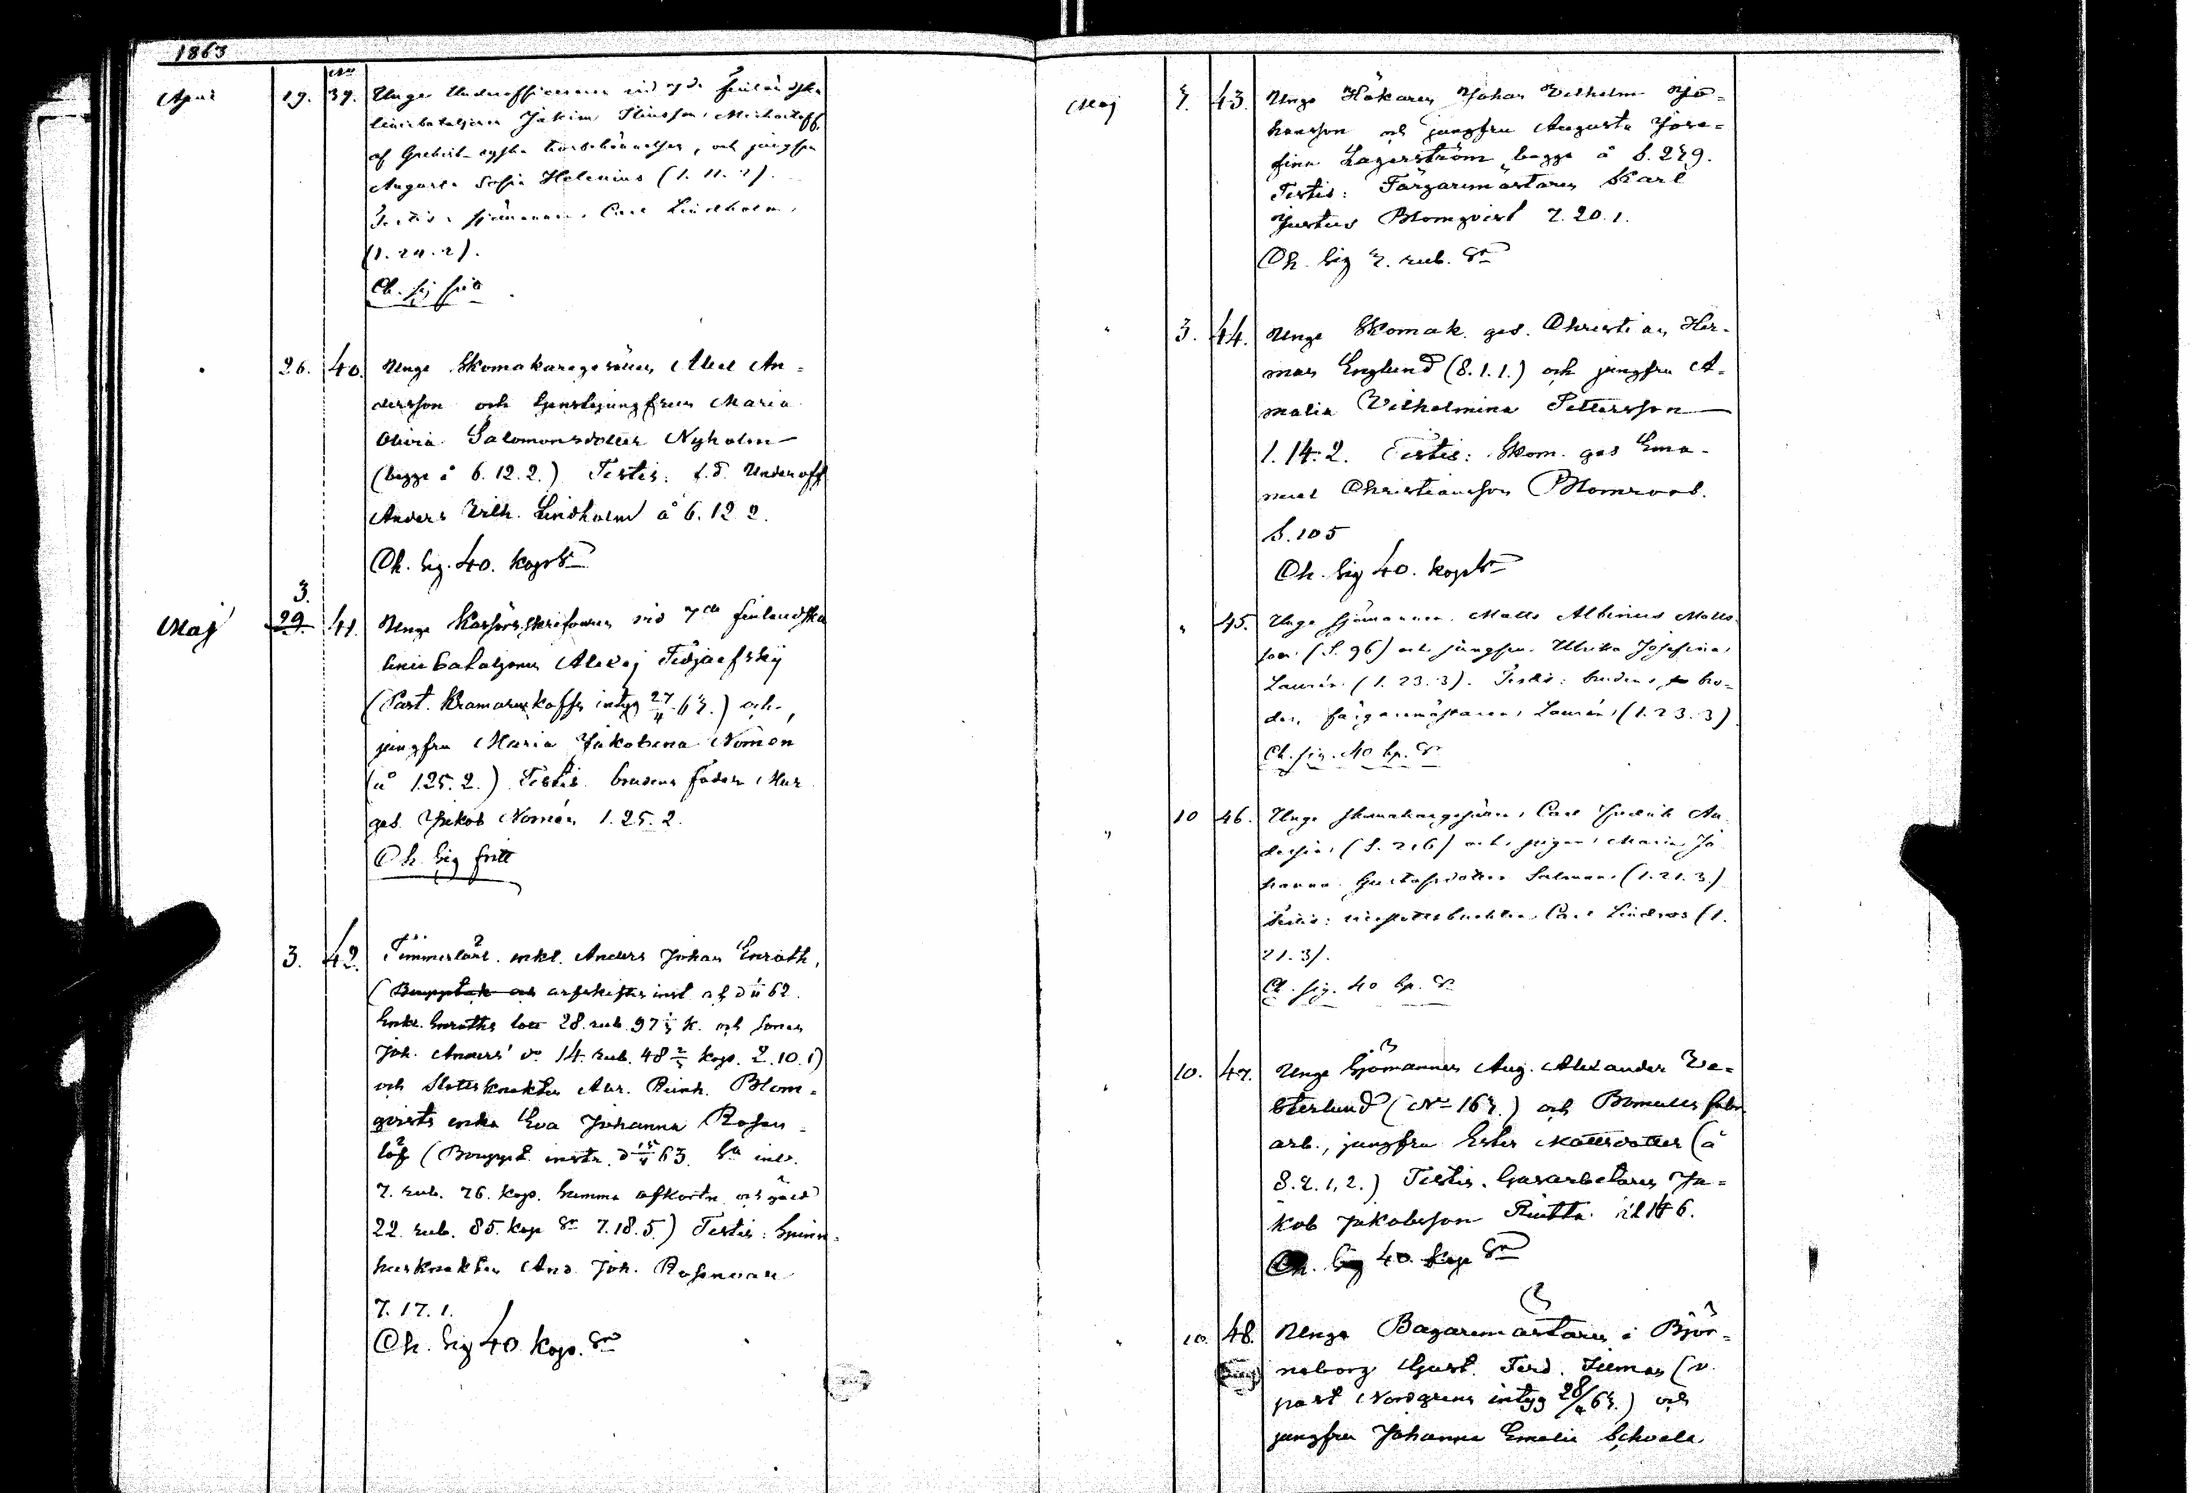 1863
No
April 19. 39. Unge Underofficeren vid 7de finländska
liniebataljonen Jakim
af Grekisk-ryska trosbekännelsen, och jungfru
Augusta Sofia Helenius (1. 11. 2).
Testis: sjömannen Carl Lindholm,
(1. 24. 2).
Ch. sig fritt
26. 40. Unge Skomakaregesällen Abel An=
dersson och tjenstejungfrun Maria
Olivia Salomonsdotter Nyholm
(begge å 6. 12. 2.) Testis: f.d. Underoff
Anders Vilh. Lindholm å 6. 12 2.
Ch. sig. 40. kop Sr
3.
Maj 29. 41. Unge Kassörsskrifvaren vid 7de finlandska
linie bataljonen Alexej
(Past. intyg 27/4 63.) och
jungfru Maria Jakobina Nomén
(å 1.25. 2.) Testis brudens fader Mur
ges. Jakob Nomén 1. 25. 2.
Ch. sig fritt
3. 42. Timmerkarl. enkl. Anders Johan Enroth,
(Bouppteck och arfskiftes inst. af d 62.
Enkl. Enroths lott 28. rub. 97 k. och sonen
Joh. Anders' do 14. rub. 48 2/3 kop. 2. 10. 1)
och Slottsknekten Abr. Reinh. Blom=
qvists enka Eva Johanna Rosen=
löf (Bouppt. instr. d 15/4 63. Sa inv.
7. rub. 76. kop. Summa afkortn. och gäld
22. rub. 85. kop Sr 7. 18. 5.) Testis: Spinn=
husknekten And. Joh. Rosenvall
7. 17. 1.
Ch. sig 40. kop. Sr
Maj 3. 43. Unge Hökaren Johan Vilhelm Jo=
hansson och jungfru Augusta Jose=
fina Lagerström begge å S. 279.
Testis: Färgaremästaren Karl
Justus Blomqvist 7. 20. 1.
Ch. sig 3. rub. Sr
" 3. 44. Unge Skomak. ges. Christian Her=
man Englund (8. 1. 1.) och jungfru A=
malia Vilhelmina Pettersson
1. 14. 2. Testis: Skom. ges Ema=
nuel Christiansson Blomroos.
S. 105
Ch. sig 40. kop Sr
" 45. Unge sjömannen Matts Albinus Matts
son (S. 96) och jungfru Ulrika Josefina
Laurén (1. 23. 3). Testis: brudens bro=
der, färgaremästaren Laurén (1. 23. 3)
Ch. sig. 40 kp. Sr
" 10 46. Unge skomakaregesällen Carl Fredrik An
dersson (S. 216) och pigan Maria Jo
hanna Gustafsdotter Salman (1. 21. 3)
Testis: Carl Lindroos (1.
21. 3).
Ch. sig. 40 kp. Sr
" 10. 47. Unge Sjömannen Aug. Alexander Ve=
sterlund (No 163.) och Bomulls fabr
arb., jungfru Ester Mattsdotter (å
8. 2. 1, 2.) Testis. Garfarbetaren Ja=
kob Jakobsson
Ch. sig 40. kop Sr
" 10. 48. Unge Bagaremästaren i Björ=
neborg Gust. Ferd. (v.
past Nordgrens intyg 28/4 63.) och
jungfru Johanna Emelie